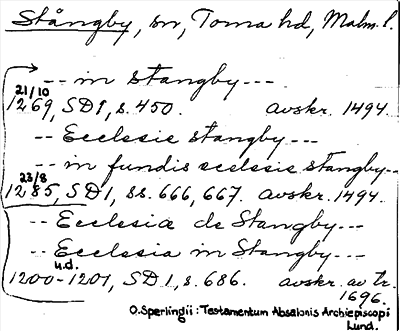 Stångby, sn, Torna hd, Malm. l.
-- in stangby ---
21/10
1269, SD1, s. 450. avskr. 1494.
-- Ecclesie stangby ---
-- in fundis ecclesie stangby --
23/8
1285, SD1, ss. 666, 667. avskr. 1494.
-- Ecclesia de Stangby ---
-- Ecclesia in Stangby ---
u.d.
1200-1201, SD1, s. 686. avskr. av tr. 1696.
O. Sperlingii: Testamentum Absalonis Archiepiscopi Lund.